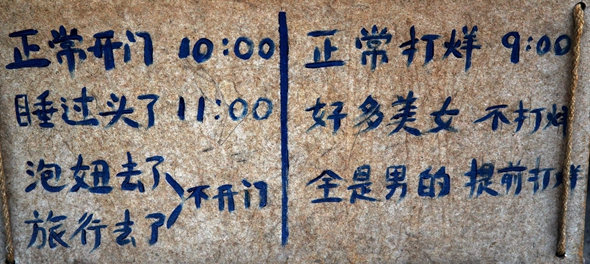 正常开门 10:00
睡过头了 11:00
泡妞去了
旅行去了
不开门
正常打烊 9:00
好多美女 不打烊
全是男的 提前打烊